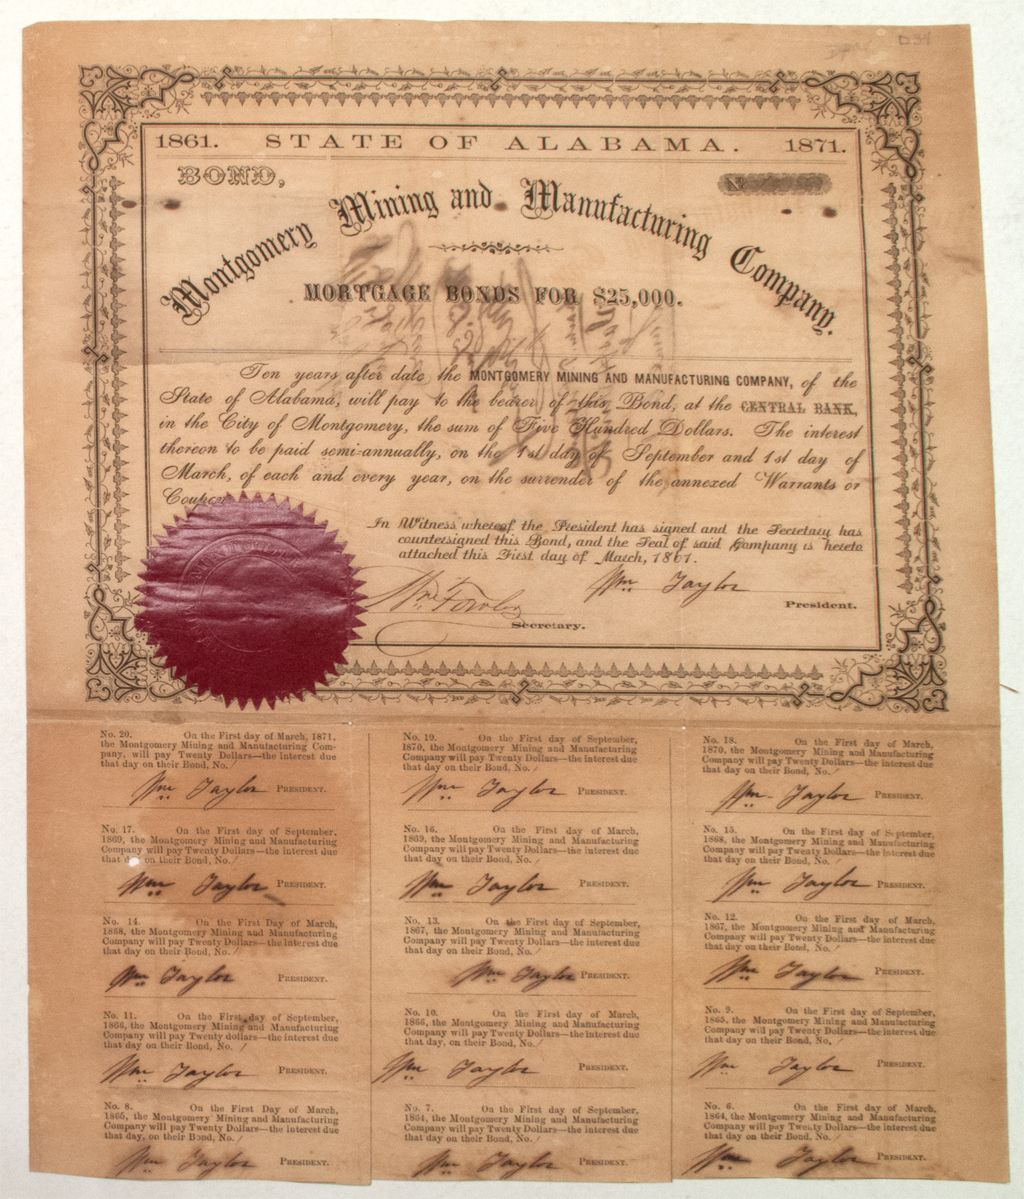 D34
1861. STATE OF ALABAMA. 1871.
BOND, No
Montgomery Mining and Manufacturing Company.
MORTGAGE BONDS FOR $25,000.
Ten years after date the MONTGOMERY MINING AND MANUFACTURING COMPANY, of the
State of Alabama, will pay to the bearer of this Bond, at the CENTRAL BANK,
in the City of Montgomery, the sum of Five Hundred Dollars. The interest
thereon to be paid semi-annually, on the 1st day of September and 1st day of
March, of each and every year, on the surrender of the annexed Warrants or
In Witness whereof the President has signed and the Secretary has
countersigned this Bond, and the Seal of said Company is hereto
attached this First day of March, 1861.
Wm Taylor
President.
Wm Fowler
Secretary.
No. 20. On the First day of March, 1871,
the Montgomery Mining and Manufacturing Com-
pany, will pay Twenty Dollars—the interest due
that day on their Bond, No. 1
Wm Taylor PRESIDENT.
No. 19. On the First day of September,
1870, the Montgomery Mining and Manufacturing
Company will pay Twenty Dollars—the interest due
that day on their Bond, No. 1
Wm Taylor PRESIDENT.
No. 18. On the First day of March,
1870, the Montgomery Mining and Manufacturing
Company will pay Twenty Dollars—the interest due
that day on their Bond, No. 1
Wm Taylor PRESIDENT.
No. 17. On the First day of September,
1869, the Montgomery Mining and Manufacturing
Company will pay Twenty Dollars—the interest due
that on their Bond, No. 1
Wm Taylor PRESIDENT.
No. 16. On the First day of March,
1869, the Montgomery Mining and Manufacturing
Company will pay Twenty Dollars—the interest due
that day on their Bond, No. 1
Wm Taylor PRESIDENT.
No. 15. On the First day of September,
1868, the Montgomery Mining and Manufacturing
Company will pay Twenty Dollars—the interest due
that day on their Bond, No. 1
Wm Taylor PRESIDENT.
No. 14. On the First Day of March,
1868, the Montgomery Mining and Manufacturing
Company will pay Twenty Dollars—the interest due
that day on their Bond, No. 1
Wm Taylor PRESIDENT.
No. 13. On the First day of September,
1867, the Montgomery Mining and Manufacturing
Company will pay Twenty Dollars—the interest due
that day on their Bond, No. 1
Wm Taylor PRESIDENT.
No. 12. On the First day of March,
1867, the Montgomery Mining and Manufacturing
Company will pay Twenty Dollars—the interest due
that day on their Bond, No. 1
Wm Taylor PRESIDENT.
No. 11. On the First day of September,
1866, the Montgomery Mining and Manufacturing
Company will pay Twenty dollars—the interest due
that day on their Bond, No. 1
Wm Taylor PRESIDENT.
No. 10. On the First day of March,
1866, the Montgomery Mining and Manufacturing
Company will pay Twenty Dollars—the interest due
that day, on their Bond, No. 1
Wm Taylor PRESIDENT.
No. 9. On the First day of September,
1865, the Montgomery Mining and Manufacturing
Company will pay Twenty Dollars—the interest due
that day on their Bond, No. 1
Wm Taylor PRESIDENT.
No. 8. On the First Day of March,
1865, the Montgomery Mining and Manufacturing
Company will pay Twenty Dollars—the interest due
that day, on their Bond, No. 1
Wm Taylor PRESIDENT.
No. 7. On the First day of September,
1864, the Montgomery Mining and Manufacturing
Company will pay Twenty Dollars—the interest due
that day on their Bond, No. 1
Wm Taylor PRESIDENT.
No. 6. On the First day of March,
1864, the Montgomery Mining and Manufacturing
Company will pay Twenty Dollars—the interest due
that day on their Bond, No. 1
Wm Taylor PRESIDENT.